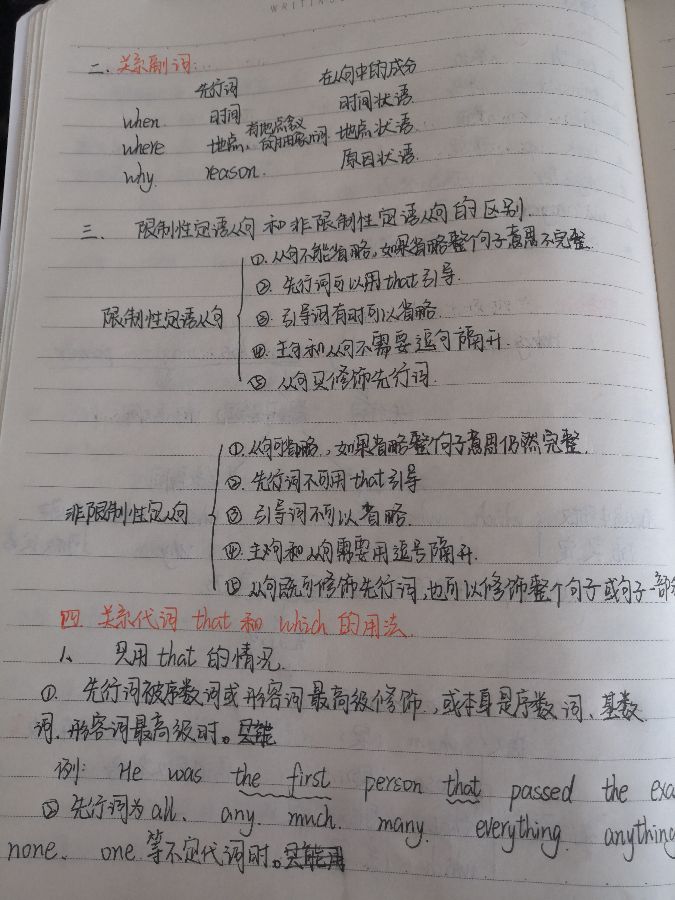 WRITING
二. 关系副词:
先行词 在从句中的成分
when. 时间 时间状语
where 地点, 有地点含义的抽象名词 地点状语.
why. reason. 原因状语.
三. 限制性定语从句和非限制性定语从句的区别.
①. 从句不能省略, 如果省略整个句子意思不完整.
②. 先行词可以用that引导.
限制性定语从句
③. 引导词有时可以省略.
④. 主句和从句不需要逗句隔开.
⑤ 从句只修饰先行词.
①. 从句可省略, 如果省略整个句子意思仍然完整.
②. 先行词不可用that引导
非限制性定从句
③ 引导词不可以省略.
④. 主句和从句需要用逗号隔开.
⑤ 从句既可修饰先行词, 也可以修饰整个句子或句子一部分
四. 关系代词 that 和 which 的用法.
1、 只用 that 的情况.
①. 先行词被序数词或形容词最高级修饰, 或本身是序数词、基数
词、形容词最高级时。
例: He was the first person that passed the exa
② 先行词为 all、 any. much. many. everything. anything
none、 one 等不定代词时。